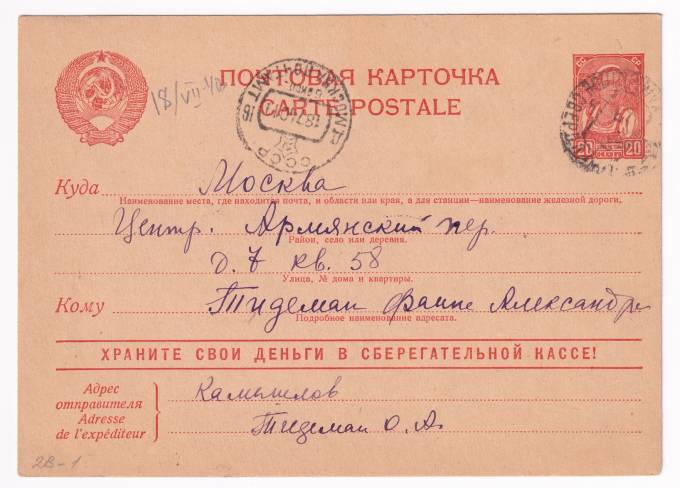 ПОЧТОВАЯ КАРТОЧКА
CARTE POSTALE
18/VII-40
СССР
20 20
Куда Москва
Наименование места, где находится почта, и области или края, а для станции—наименование железной дороги.
Центр. Армянский пер.
Район, село или деревня.
д. 7 кв. 58
Улица, № дома и квартиры.
Кому Тидеман Фаине Александр
Подробное наименование адресата.
ХРАНИТЕ СВОИ ДЕНЬГИ В СБЕРЕГАТЕЛЬНОЙ КАССЕ!
Адрес
отправителя
Adresse
de l'expéditeur
Камышлов
Тидеман О. А.
2В-1